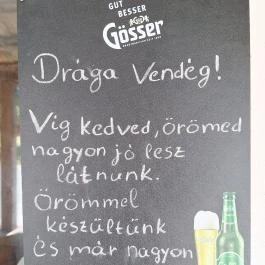 GUT
BESSER
Gösser
Drága Vendég!
Víg kedved, örömed
nagyon jó lesz
látnunk.
Örömmel
készültünk
és már nagyon